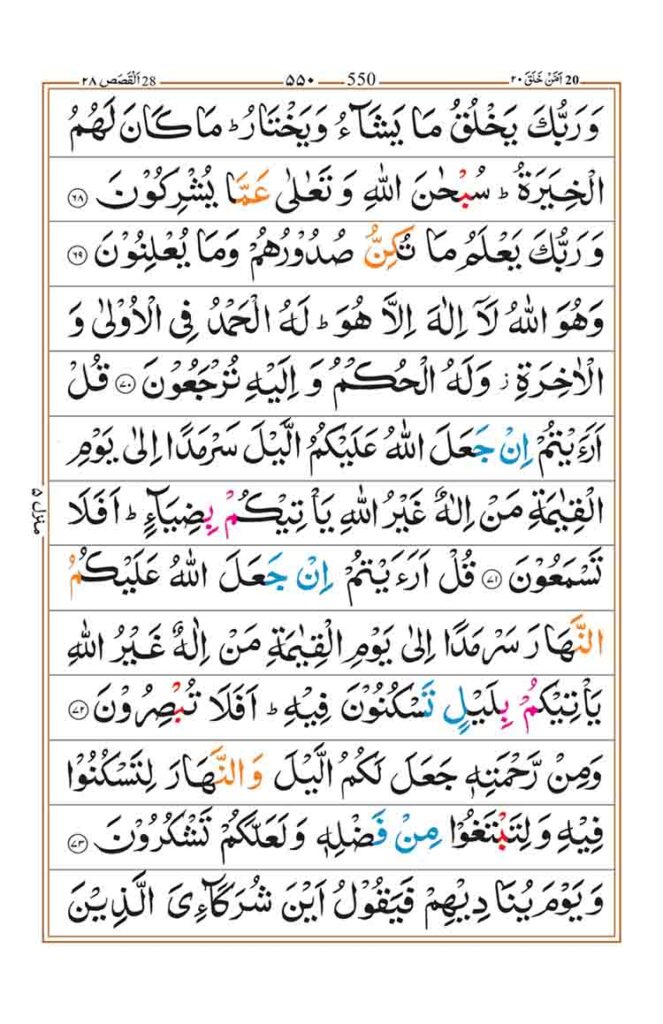 20 اَمَّنْ خَلَقَ ٢٠ 550 ٥٥٠ 28 اَلْقَصَص ٢٨
وَ رَبُّكَ يَخْلُقُ مَا يَشَآءُ وَ يَخْتَارُ ؕ مَا كَانَ لَهُمُ
الْخِيَرَةُ ؕ سُبْحٰنَ اللّٰهِ وَ تَعٰلٰى عَمَّا يُشْرِكُوْنَ ﴿٦٨﴾
وَ رَبُّكَ يَعْلَمُ مَا تُكِنُّ صُدُوْرُهُمْ وَمَا يُعْلِنُوْنَ ﴿٦٩﴾
وَهُوَ اللّٰهُ لَاۤ اِلٰهَ اِلَّا هُوَ ؕ لَهُ الْحَمْدُ فِى الْاُوْلٰى وَ
الْاٰخِرَةِ ؗ وَلَهُ الْحُكْمُ وَ اِلَيْهِ تُرْجَعُوْنَ ﴿٧٠﴾ قُلْ
اَرَءَيْتُمْ اِنْ جَعَلَ اللّٰهُ عَلَيْكُمُ الَّيْلَ سَرْمَدًا اِلٰى يَوْمِ
الْقِيٰمَةِ مَنْ اِلٰهٌ غَيْرُ اللّٰهِ يَاْتِيْكُمْ بِضِيَآءٍ ؕ اَفَلَا
تَسْمَعُوْنَ ﴿٧١﴾ قُلْ اَرَءَيْتُمْ اِنْ جَعَلَ اللّٰهُ عَلَيْكُمُ
النَّهَارَ سَرْمَدًا اِلٰى يَوْمِ الْقِيٰمَةِ مَنْ اِلٰهٌ غَيْرُ اللّٰهِ
يَاْتِيْكُمْ بِلَيْلٍ تَسْكُنُوْنَ فِيْهِ ؕ اَفَلَا تُبْصِرُوْنَ ﴿٧٢﴾
وَمِنْ رَّحْمَتِهٖ جَعَلَ لَكُمُ الَّيْلَ وَالنَّهَارَ لِتَسْكُنُوْا
فِيْهِ وَ لِتَبْتَغُوْا مِنْ فَضْلِهٖ وَ لَعَلَّكُمْ تَشْكُرُوْنَ ﴿٧٣﴾
وَ يَوْمَ يُنَادِيْهِمْ فَيَقُوْلُ اَيْنَ شُرَكَآءِىَ الَّذِيْنَ
منزل ٥